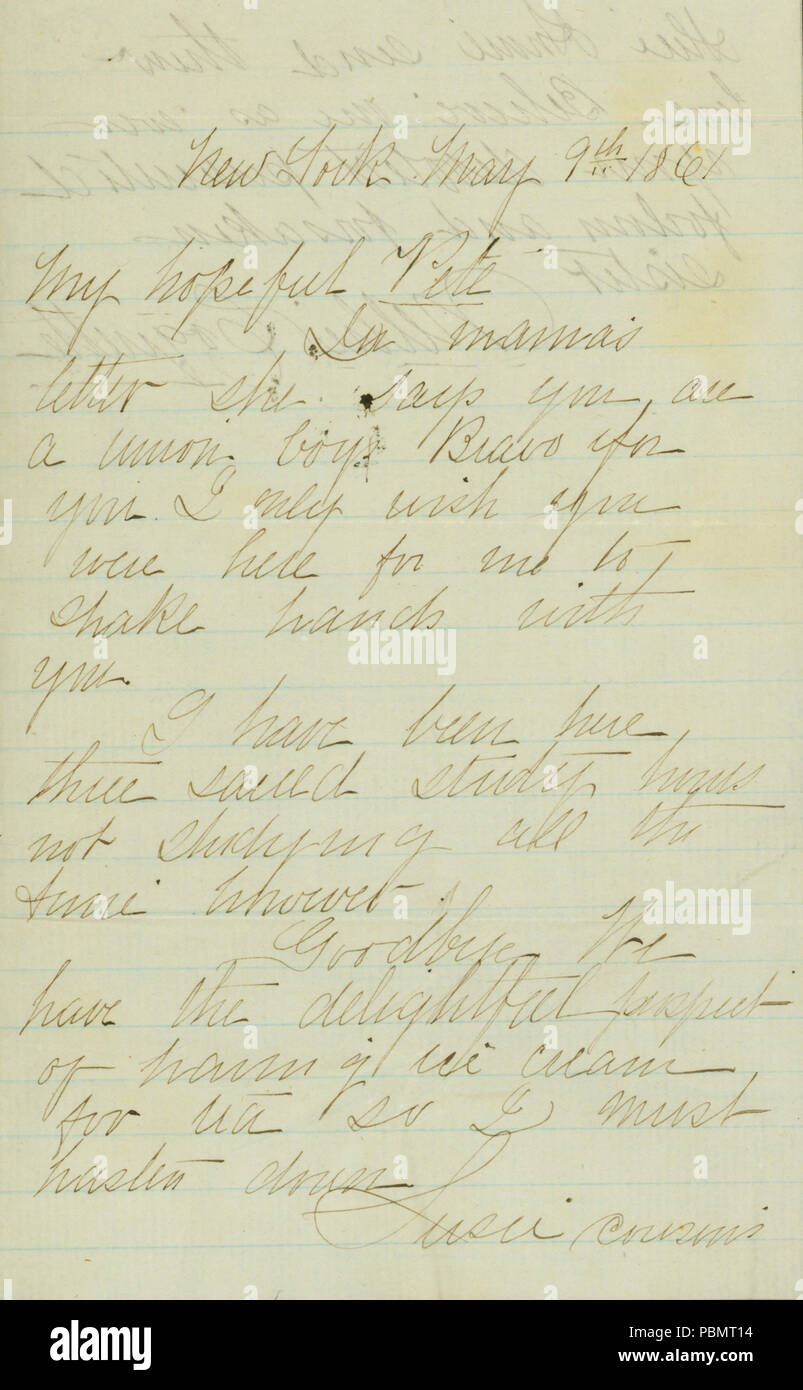 New York May 9th 1861
My hopeful Pete
In mamas
letter she says you are
a union boy. Bravo for
you. I only wish you
were here for me to
shake hands with
you.
I have been here
three sacred study hours
not studying all the
time however.
Goodbye We
have the delightful prospect
of having ice cream
for tea so I must
hasten down
Susie cousins
alamy
alamy
Image ID: PBMT14
www.alamy.com